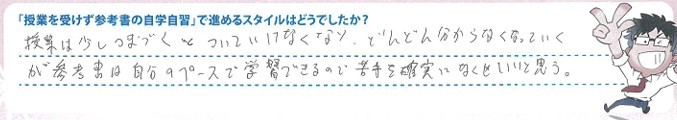 「授業を受けず参考書の自学自習」で進めるスタイルはどうでしたか?
授業は少しつまづくとついていけなくなり、どんどん分からなくなっていく
が参考書は自分のペースで学習できるので苦手を確実になくせいいと思う。